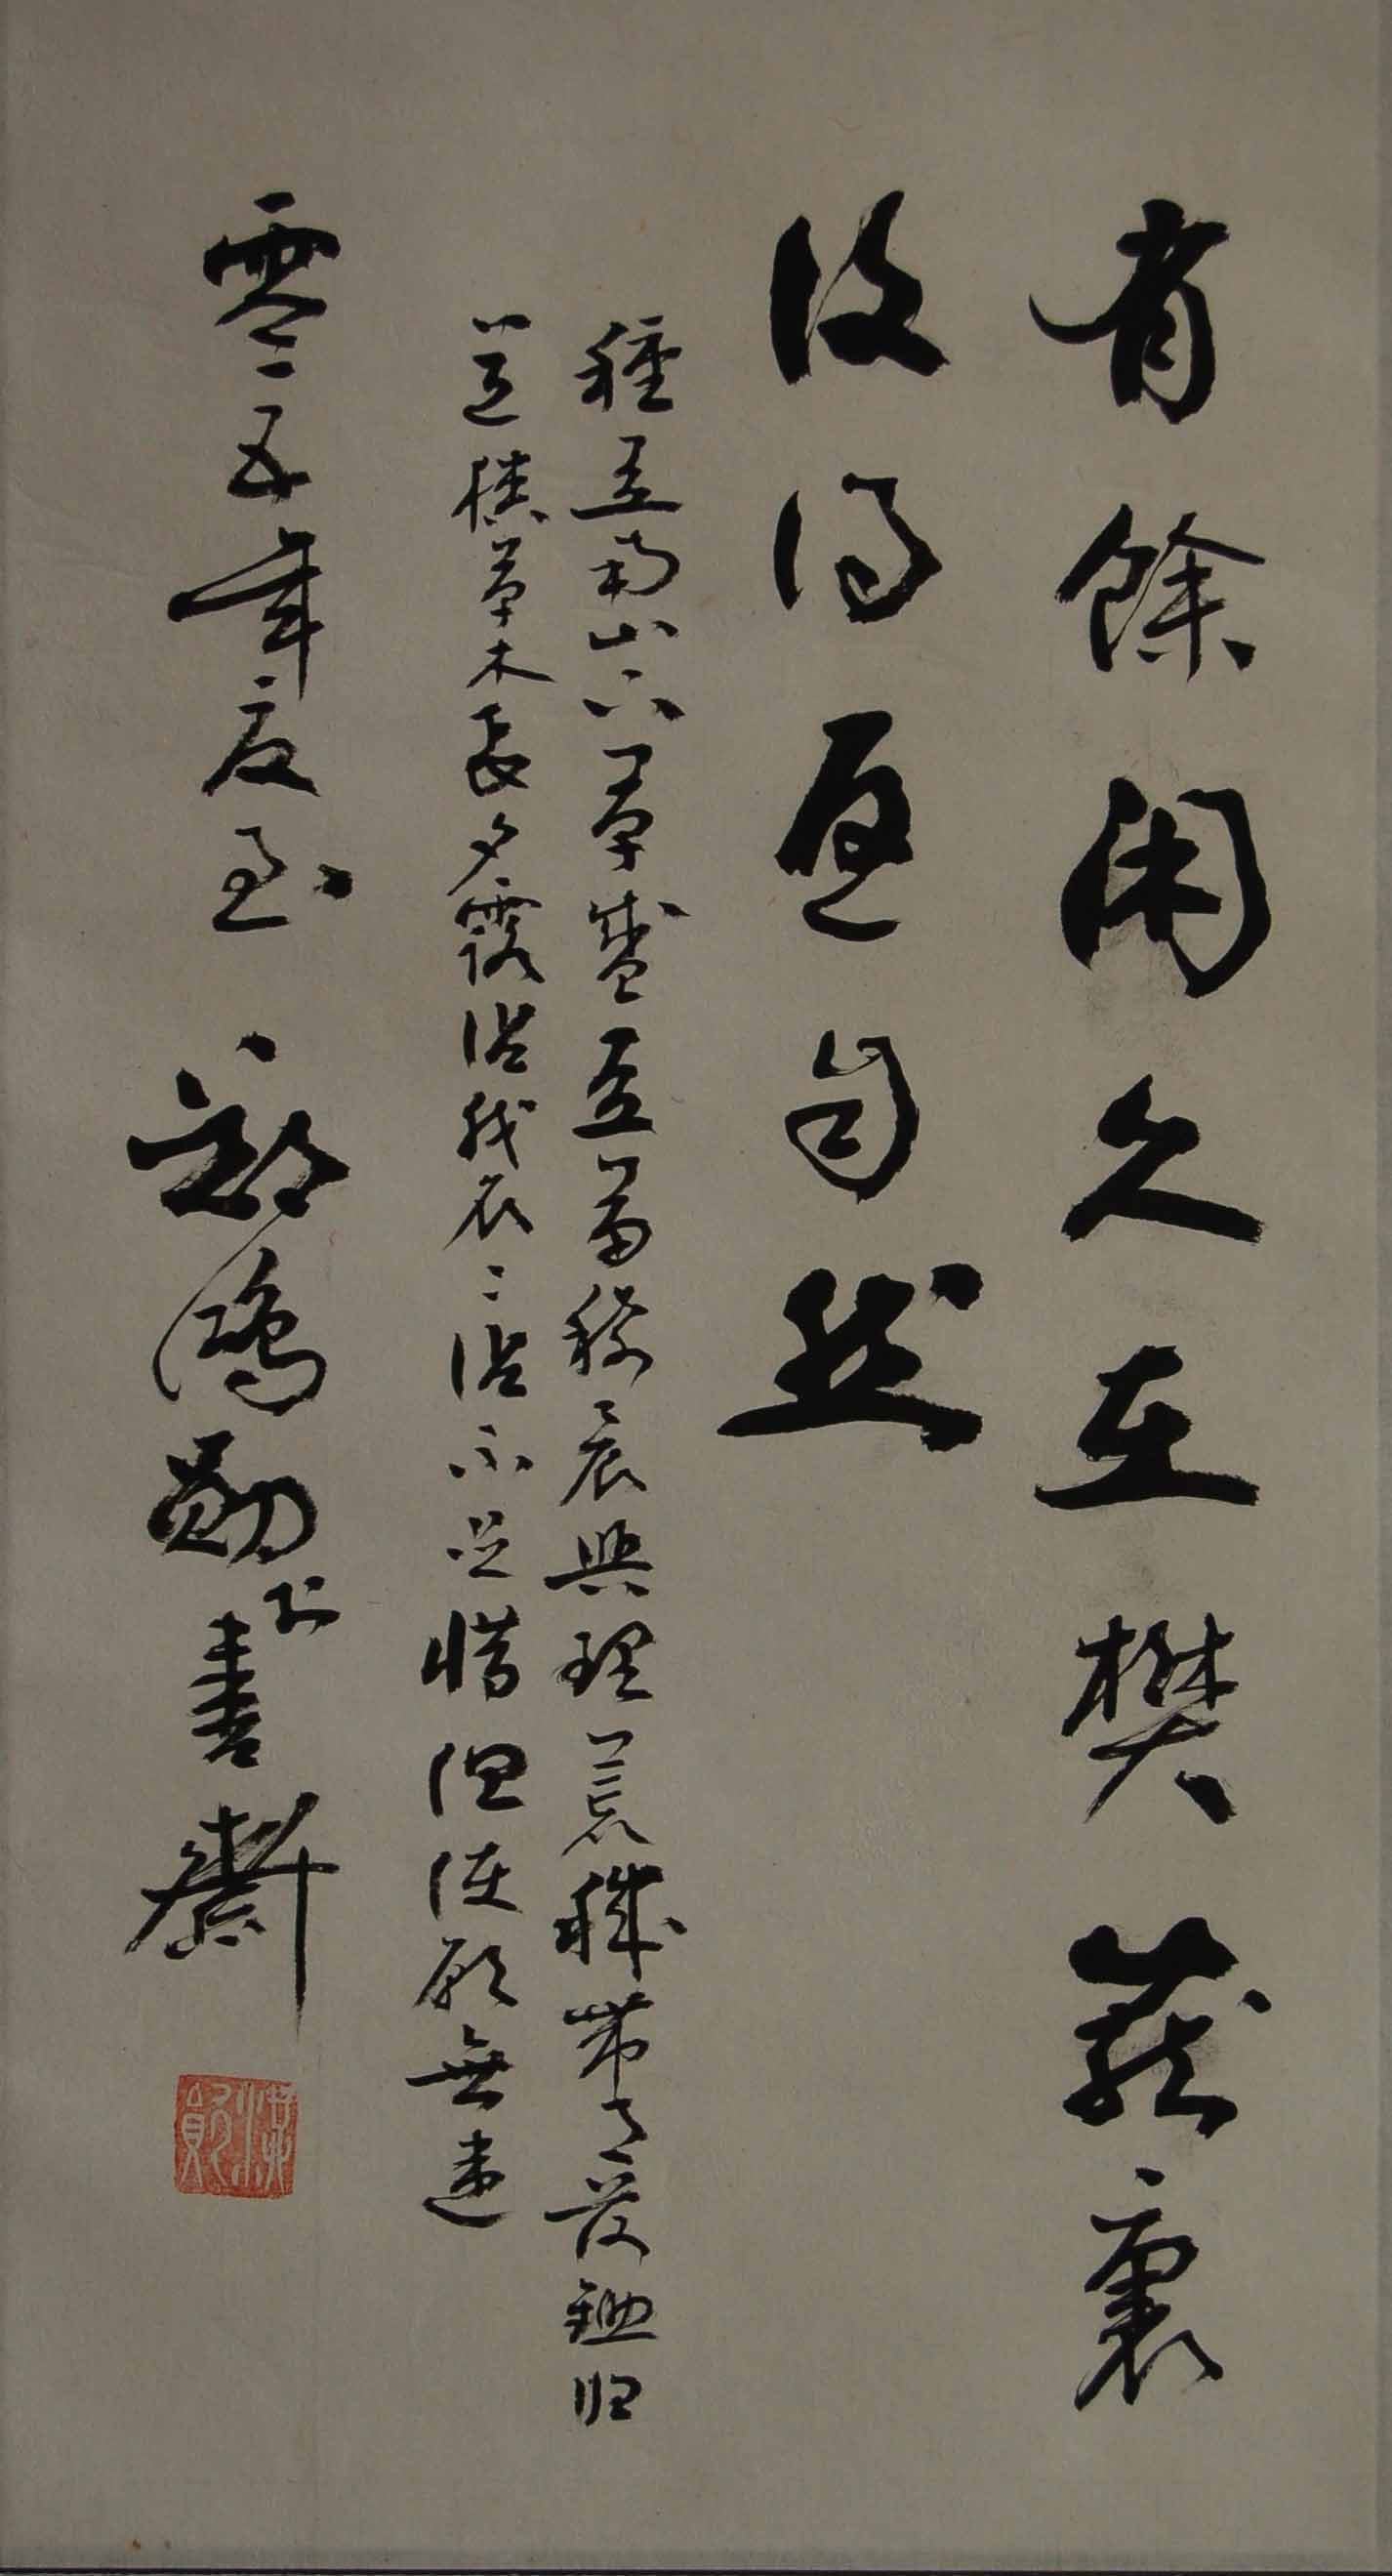 有餘閑久在樊籠裏
復得返自然
種豆南山下草盛豆苗稀晨興理荒穢帶月荷鋤归
道狹草木長夕露沾我衣〻沾不足惜但使願無違
零五年夏至鴻勛於書齋